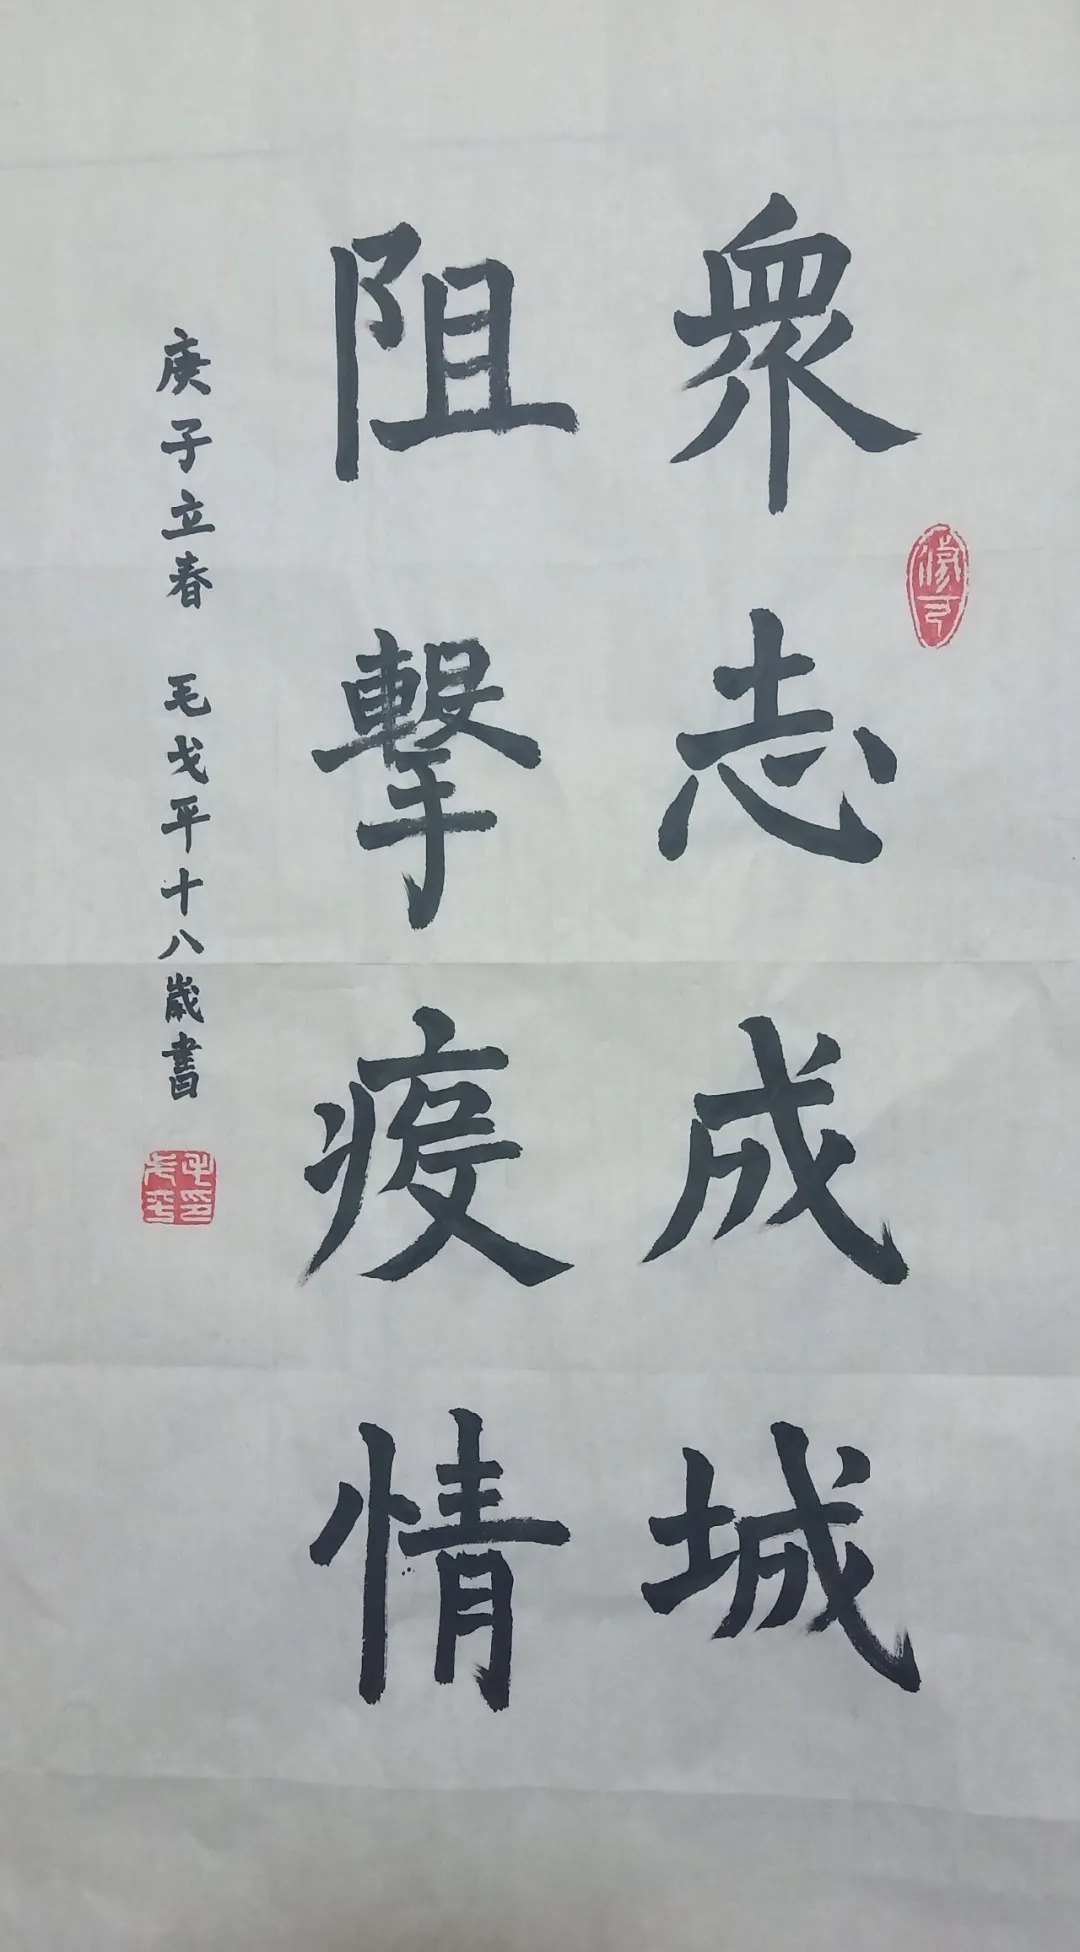 眾志成城
阻擊疫情
庚子立春 毛戈平十八歲書